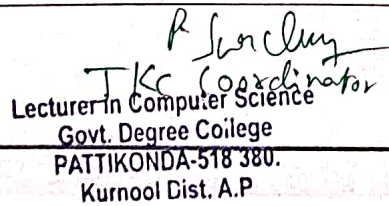 P
JKC Coordinator
Lecturer in Computer Science
Govt. Degree College
PATTIKONDA-518 380.
Kurnool Dist. A.P